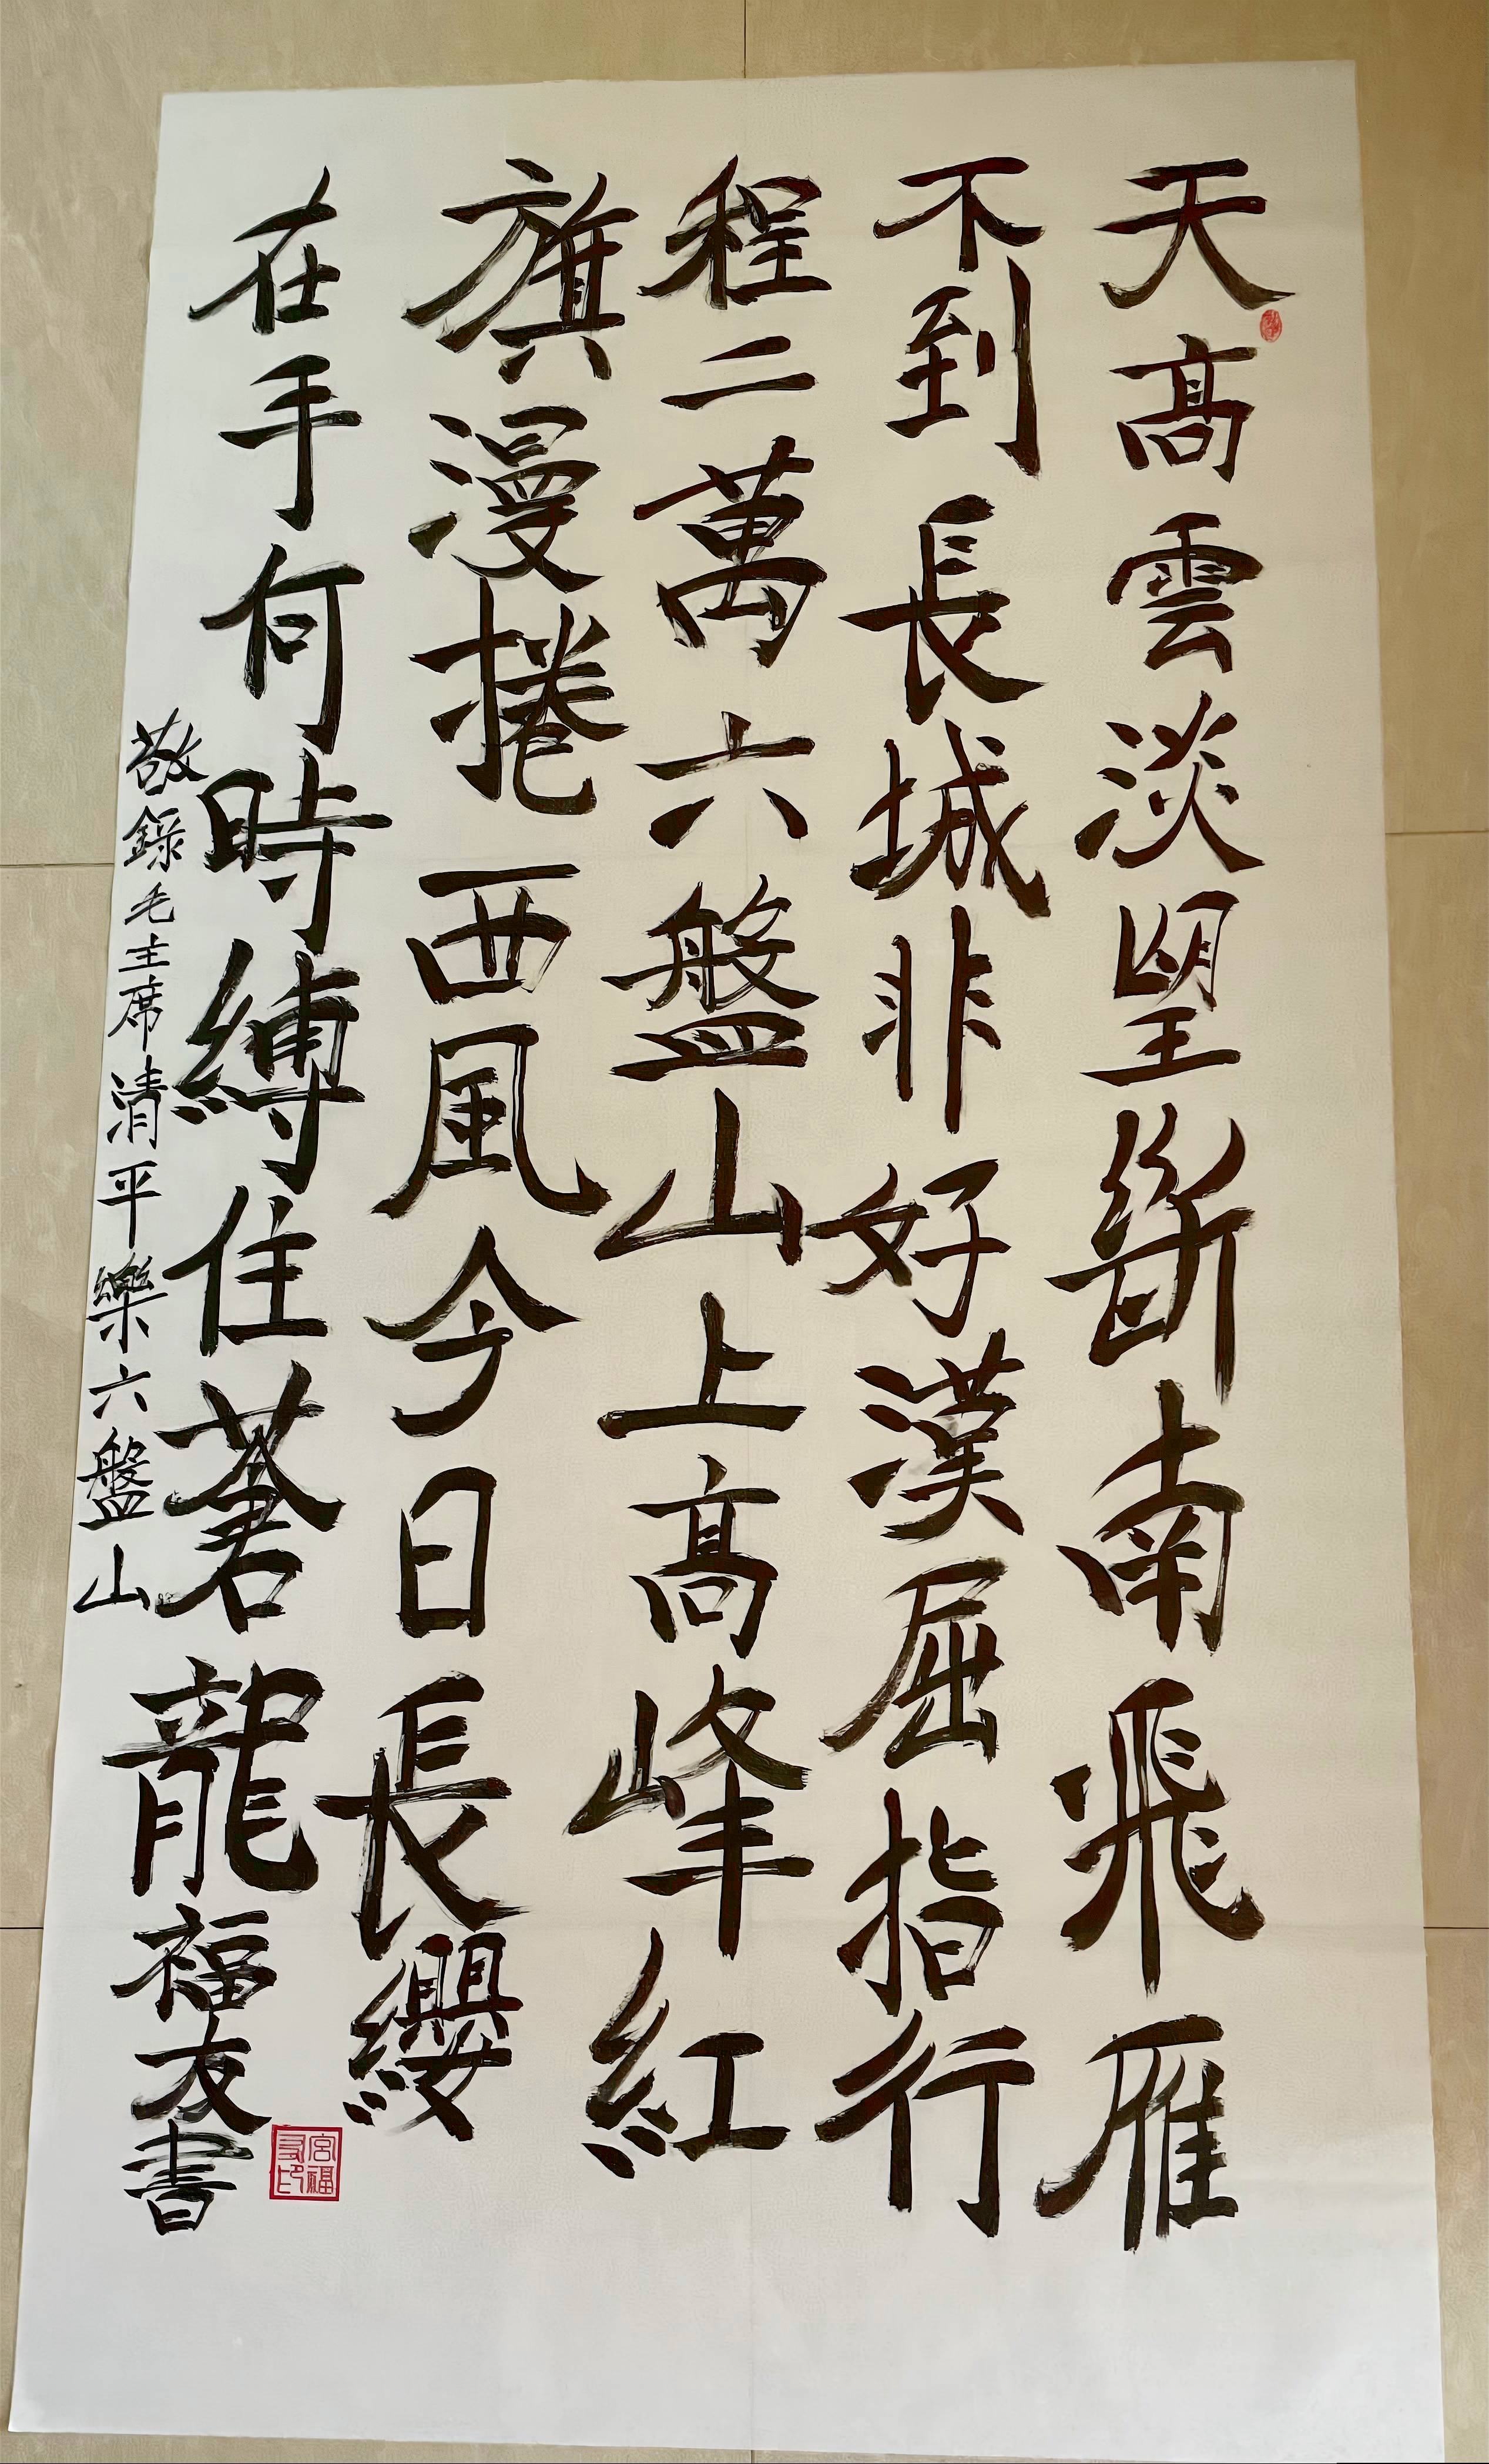 天高雲淡望斷南飛雁
不到長城非好漢屈指行
程二萬六盤山上高峰紅
旗漫捲西風今日長纓
在手何時縛住蒼龍
福友書
敬錄毛主席清平樂六盤山
宮福友印